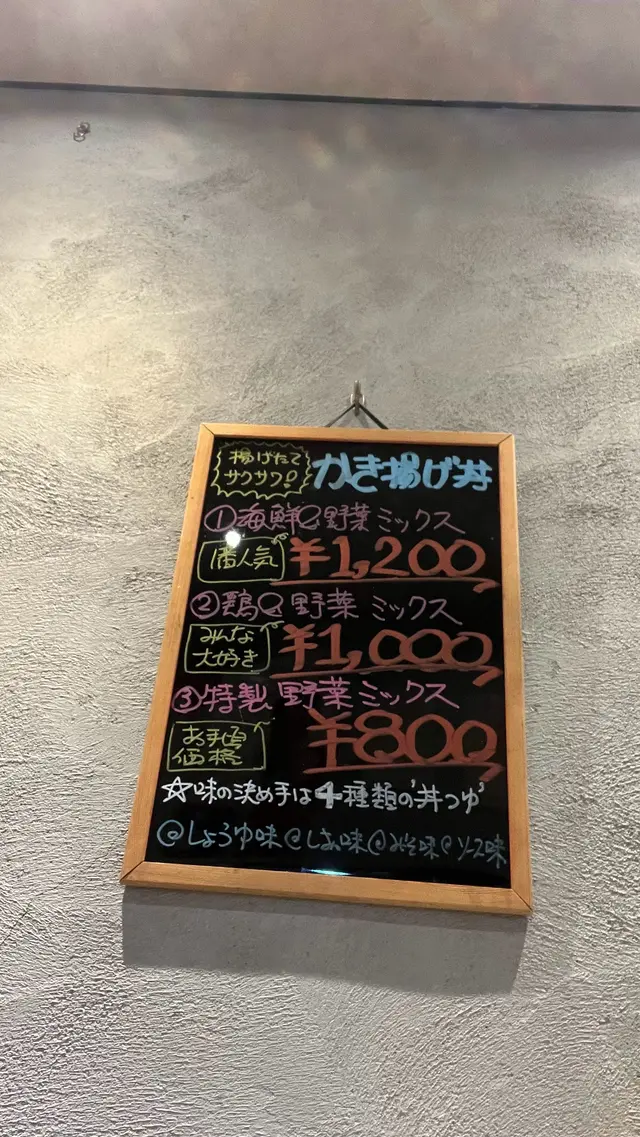 揚げたて
サクサク!
かき揚げ丼
①海鮮と野菜ミックス
1番人気
¥1,200
②鶏と野菜ミックス
みんな
大好き
¥1,000
③特製野菜ミックス
お手頃
価格
¥800
☆味の決め手は4種類の'丼つゆ'
@しょうゆ味@しお味@みそ味@ソース味